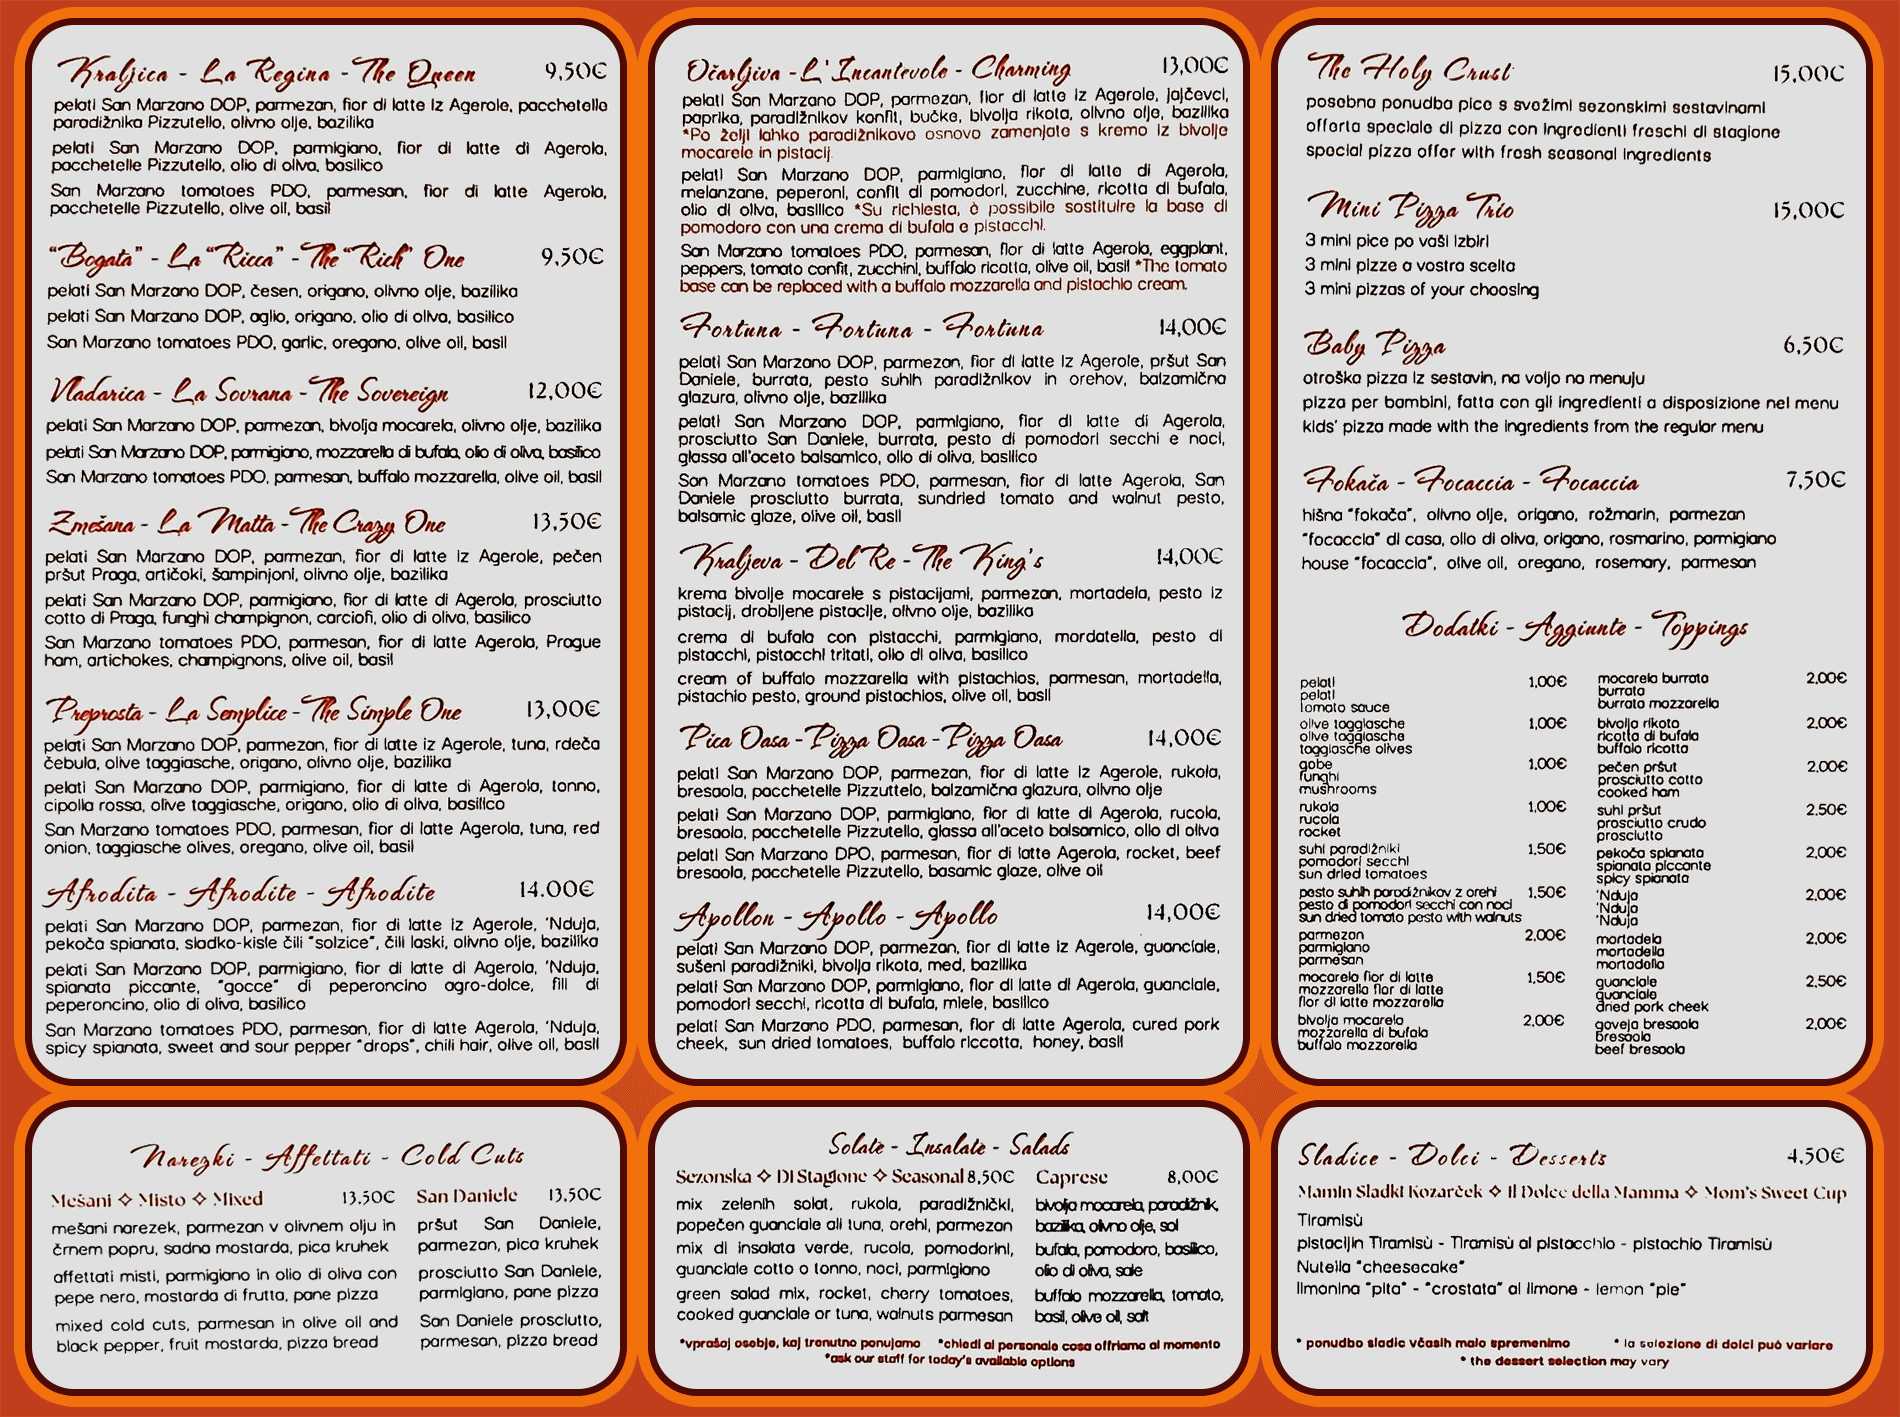 Kraljica - La Regina - The Queen 9,50€
pelati San Marzano DOP, parmezan, fior di latte iz Agerole, pacchetelle
paradižnika Pizzutello, olivno olje, bazilika
pelati San Marzano DOP, parmigiano, fior di latte di Agerola,
pacchetelle Pizzutello, olio di oliva, basilico
San Marzano tomatoes PDO, parmesan, fior di latte Agerola,
pacchetelle Pizzutello, olive oil, basil
"Bogata" - La "Ricca" - The "Rich" One 9,50€
pelati San Marzano DOP, česen, origano, olivno olje, bazilika
pelati San Marzano DOP, aglio, origano, olio di oliva, basilico
San Marzano tomatoes PDO, garlic, oregano, olive oil, basil
Vladarica - La Sovrana - The Sovereign 12,00€
pelati San Marzano DOP, parmezan, bivolja mocarela, olivno olje, bazilika
pelati San Marzano DOP, parmigiano, mozzarella di bufala, olio di oliva, basilico
San Marzano tomatoes PDO, parmesan, buffalo mozzarella, olive oil, basil
Zmešana - La Matta - The Crazy One 13,50€
pelati San Marzano DOP, parmezan, fior di latte iz Agerole, pečen
pršut Praga, artičoki, šampinjoni, olivno olje, bazilika
pelati San Marzano DOP, parmigiano, fior di latte di Agerola, prosciutto
cotto di Praga, funghi champignon, carciofi, olio di oliva, basilico
San Marzano tomatoes PDO, parmesan, fior di latte Agerola, Prague
ham, artichokes, champignons, olive oil, basil
Preprosta - La Semplice - The Simple One 13,00€
pelati San Marzano DOP, parmezan, fior di latte iz Agerole, tuna, rdeča
čebula, olive taggiasche, origano, olivno olje, bazilika
pelati San Marzano DOP, parmigiano, fior di latte di Agerola, tonno,
cipolla rossa, olive taggiasche, origano, olio di oliva, basilico
San Marzano tomatoes PDO, parmesan, fior di latte Agerola, tuna, red
onion, taggiasche olives, oregano, olive oil, basil
Afrodita - Afrodite - Afrodite 14.00€
pelati San Marzano DOP, parmezan, fior di latte iz Agerole, 'Nduja,
pekoča spianata, sladko-kisle čili "solzice", čili laski, olivno olje, bazilika
pelati San Marzano DOP, parmigiano, fior di latte di Agerola, 'Nduja,
spianata piccante, "gocce" di peperoncino agro-dolce, fili di
peperoncino, olio di oliva, basilico
San Marzano tomatoes PDO, parmesan, fior di latte Agerola, 'Nduja,
spicy spianata, sweet and sour pepper "drops", chili hair, olive oil, basil
Očarljiva - L' Incantevole - Charming 13,00€
pelati San Marzano DOP, parmezan, fior di latte iz Agerole, jajčevci,
paprika, paradižnikov konfit, bučke, bivolja rikota, olivno olje, bazilika
*Po želji lahko paradižnikovo osnovo zamenjate s kremo iz bivolje
mocarele in pistacij.
pelati San Marzano DOP, parmigiano, fior di latte di Agerola,
melanzane, peperoni, confit di pomodori, zucchine, ricotta di bufala,
olio di oliva, basilico *Su richiesta, è possibile sostituire la base di
pomodoro con una crema di bufala e pistacchi.
San Marzano tomatoes PDO, parmesan, fior di latte Agerola, eggplant,
peppers, tomato confit, zucchini, buffalo ricotta, olive oil, basil *The tomato
base can be replaced with a buffalo mozzarella and pistachio cream.
Fortuna - Fortuna - Fortuna 14,00€
pelati San Marzano DOP, parmezan, fior di latte iz Agerole, pršut San
Daniele, burrata, pesto suhih paradižnikov in orehov, balzamična
glazura, olivno olje, bazilika
pelati San Marzano DOP, parmigiano, fior di latte di Agerola,
prosciutto San Daniele, burrata, pesto di pomodori secchi e noci,
glassa all'aceto balsamico, olio di oliva, basilico
San Marzano tomatoes PDO, parmesan, fior di latte Agerola, San
Daniele prosciutto burrata, sundried tomato and walnut pesto,
balsamic glaze, olive oil, basil
Kraljeva - Del Re - The King's 14,00€
krema bivolje mocarele s pistacijami, parmezan, mortadela, pesto iz
pistacij, drobljene pistacije, olivno olje, bazilika
crema di bufala con pistacchi, parmigiano, mordatella, pesto di
pistacchi, pistacchi tritati, olio di oliva, basilico
cream of buffalo mozzarella with pistachios, parmesan, mortadella,
pistachio pesto, ground pistachios, olive oil, basil
Pica Oasa - Pizza Oasa - Pizza Oasa 14,00€
pelati San Marzano DOP, parmezan, fior di latte iz Agerole, rukola,
bresaola, pacchetelle Pizzuttelo, balzamična glazura, olivno olje
pelati San Marzano DOP, parmigiano, fior di latte di Agerola, rucola,
bresaola, pacchetelle Pizzutello, glassa all'aceto balsamico, olio di oliva
pelati San Marzano DPO, parmesan, fior di latte Agerola, rocket, beef
bresaola, pacchetelle Pizzutello, basamic glaze, olive oil
Apollon - Apollo - Apollo 14,00€
pelati San Marzano DOP, parmezan, fior di latte iz Agerole, guanciale,
sušeni paradižniki, bivolja rikota, med, bazilika
pelati San Marzano DOP, parmigiano, fior di latte di Agerola, guanciale,
pomodori secchi, ricotta di bufala, miele, basilico
pelati San Marzano PDO, parmesan, fior di latte Agerola, cured pork
cheek, sun dried tomatoes, buffalo riccotta, honey, basil
The Holy Crust 15,00€
posebna ponudba pice s svežimi sezonskimi sestavinami
offerta speciale di pizza con ingredienti freschi di stagione
special pizza offer with fresh seasonal ingredients
Mini Pizza Trio 15,00€
3 mini pice po vaši izbiri
3 mini pizze a vostra scelta
3 mini pizzas of your choosing
Baby Pizza 6,50€
otroška pizza iz sestavin, na voljo na menuju
pizza per bambini, fatta con gli ingredienti a disposizione nel menu
kids' pizza made with the ingredients from the regular menu
Fokača - Focaccia - Focaccia 7,50€
hišna "fokača", olivno olje, origano, rožmarin, parmezan
"focaccia" di casa, olio di oliva, origano, rosmarino, parmigiano
house "focaccia", olive oil, oregano, rosemary, parmesan
Dodatki - Aggiunte - Toppings
pelati 1,00€
pelati
tomato sauce
olive taggiasche 1,00€
olive taggiasche
taggiasche olives
gobe 1,00€
funghi
mushrooms
rukola 1,00€
rucola
rocket
suhi paradižniki 1,50€
pomodori secchi
sun dried tomatoes
pesto suhih paradižnikov z orehi 1,50€
pesto di pomodori secchi con noci
sun dried tomato pesto with walnuts
parmezan 2,00€
parmigiano
parmesan
mocarela fior di latte 1,50€
mozzarella fior di latte
fior di latte mozzarella
bivolja mocarela 2,00€
mozzarella di bufala
buffalo mozzarella
mocarela burrata 2,00€
burrata
burrata mozzarella
bivolja rikota 2,00€
ricotta di bufala
buffalo ricotta
pečen pršut 2,00€
prosciutto cotto
cooked ham
suhi pršut 2,50€
prosciutto crudo
prosciutto
pekoča spianata 2,00€
spianata piccante
spicy spianata
'Nduja 2,00€
'Nduja
'Nduja
mortadela 2,00€
mortadella
mortadella
guanciale 2,50€
guanciale
dried pork cheek
goveja bresaola 2,00€
bresaola
beef bresaola
Narezki - Affettati - Cold Cuts
Mešani ✧ Misto ✧ Mixed 13,50€
mešani narezek, parmezan v olivnem olju in
črnem popru, sadna mostarda, pica kruhek
affettati misti, parmigiano in olio di oliva con
pepe nero, mostarda di frutta, pane pizza
mixed cold cuts, parmesan in olive oil and
black pepper, fruit mostarda, pizza bread
San Daniele 13,50€
pršut San Daniele,
parmezan, pica kruhek
prosciutto San Daniele,
parmigiano, pane pizza
San Daniele prosciutto,
parmesan, pizza bread
Solate - Insalate - Salads
Sezonska ✧ Di Stagione ✧ Seasonal 8,50€
mix zelenih solat, rukola, paradižnički,
popečen guanciale ali tuna, orehi, parmezan
mix di insalata verde, rucola, pomodorini,
guanciale cotto o tonno, noci, parmigiano
green salad mix, rocket, cherry tomatoes,
cooked guanciale or tuna, walnuts parmesan
Caprese 8,00€
bivolja mocarela, paradižnik,
bazilika, olivno olje, sol
bufala, pomodoro, basilico,
olio di oliva, sale
buffalo mozzarella, tomato,
basil, olive oil, salt
*vprašaj osebje, kaj trenutno ponujamo *chiedi al personale cosa offriamo al momento
*ask our staff for today's available options
Sladice - Dolci - Desserts 4,50€
Mamin Sladki Kozarček ✧ Il Dolce della Mamma ✧ Mom's Sweet Cup
Tiramisù
pistacijin Tiramisù - Tiramisù al pistacchio - pistachio Tiramisù
Nutella "cheesecake"
limonina "pita" - "crostata" al limone - lemon "pie"
* ponudba sladic včasih malo spremenimo * la selezione di dolci può variare
* the dessert selection may vary